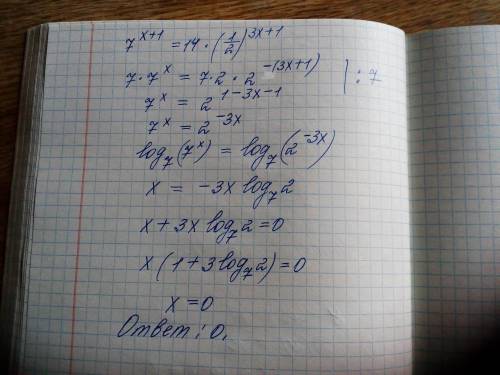 7^{x+1} = 14 · (1/2)^{3x+1}
7 · 7^x = 7 · 2 · 2^{-(3x+1)} | : 7
7^x = 2^{1-3x-1}
7^x = 2^{-3x}
log_7(7^x) = log_7(2^{-3x})
x = -3x log_7 2
x + 3x log_7 2 = 0
x(1 + 3 log_7 2) = 0
x = 0
Ответ: 0.